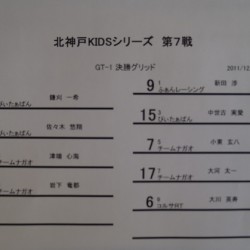 北神戸KIDSシリーズ 第7戦
GT-1 決勝グリッド
2011/12/
鎌刈 一希
ぴいたぁぱん
佐々木 悠翔
ぴいたぁぱん
津畑 心海
チームナガオ
岩下 竜都
チームナガオ
9 1 新田 涼
ふぁんレーシング
15 3
ぴいたぁぱん
7 5 小東 玄八
チームナガオ
17 7 大河 太一
チームナガオ
6 9
コルサGT